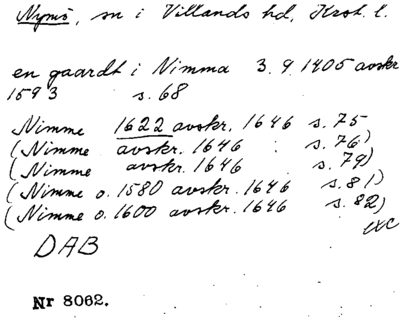 Nymö, sn i Villands hd, Krst. l.
en gaardt i Nimma 3.9.1405 avskr
1593 s.68
Nimme 1622 avskr. 1646 s.75
(Nimme avskr. 1646 s.76)
(Nimme avskr. 1646 s.79)
(Nimme o. 1580 avskr. 1646 s.81)
(Nimme o. 1600 avskr. 1646 s.82)
exc
DAB
Nr 8062.